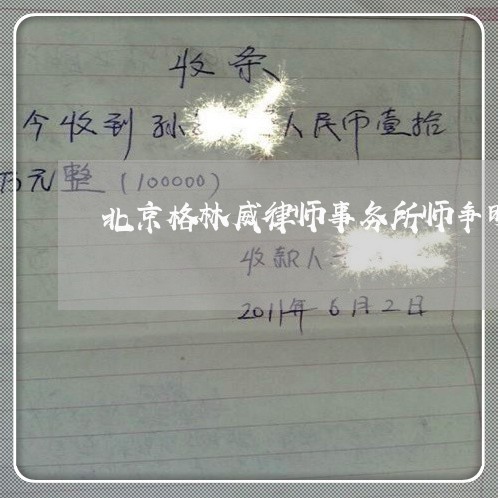 收条
今收到孙 人民币壹拾
万元整(100000)
北京格林威律师事务所师争
收款人
2011年6月2日